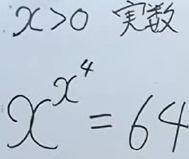 x>0 実数
x^{x^4}=64